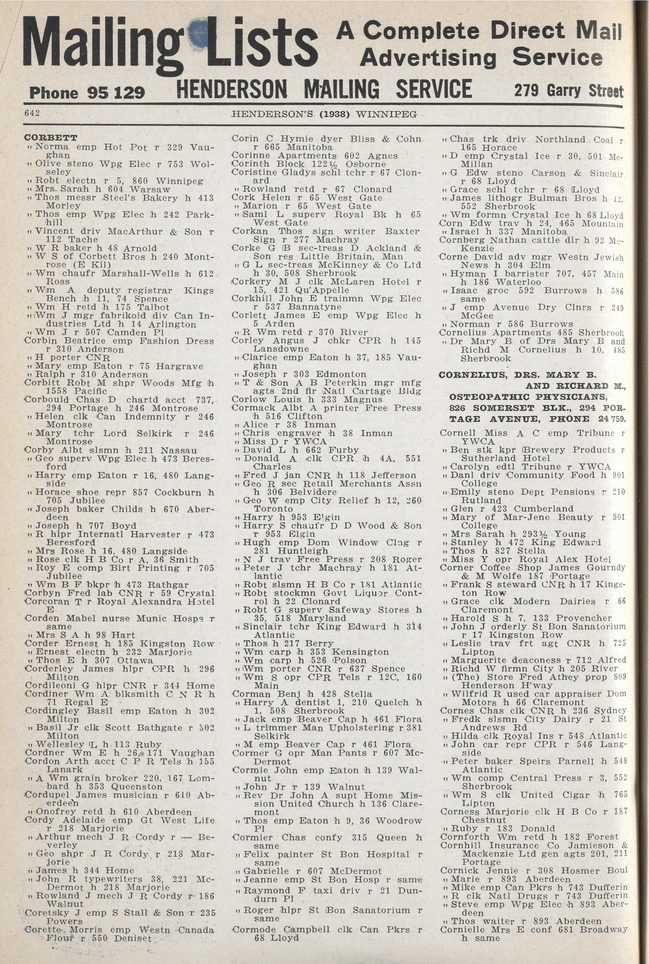 Mailing Lists
A Complete Direct Mail
Advertising Service
Phone 95 129 HENDERSON MAILING SERVICE 279 Garry Street
642 HENDERSON'S (1938) WINNIPEG
CORBETT
" Norma emp Hot Pot r 329 Vau-
ghan
" Olive steno Wpg Elec r 753 Wol-
seley
" Robt electn r 5, 860 Winnipeg
" Mrs Sarah h 604 Warsaw
" Thos messr Steel's Bakery h 413
Morley
" Thos emp Wpg Elec h 242 Park-
hill
" Vincent driv MacArthur & Son r
112 Tache
" W R baker h 48 Arnold
" W S of Corbett Bros h 240 Mont-
rose (E Kil)
" Wm chaufr Marshall-Wells h 612
Ross
" Wm A deputy registrar Kings
Bench h 11, 74 Spence
" Wm H retd h 175 Talbot
" Wm J mgr fabrikoid div Can In-
dustries Ltd h 14 Arlington
" Wm J r 507 Camden Pl
Corbin Beatrice emp Fashion Dress
r 310 Anderson
" H porter CNR
" Mary emp Eaton r 75 Hargrave
" Ralph r 310 Anderson
Corbitt Robt M shpr Woods Mfg h
1558 Pacific
Corbould Chas D chartd acct 737,
294 Portage h 246 Montrose
" Helen clk Can Indemnity r 246
Montrose
" Mary tchr Lord Selkirk r 246
Montrose
Corby Albt slsmn h 211 Nassau
" Geo superv Wpg Elec h 473 Beres-
ford
" Harry emp Eaton r 16, 480 Lang-
side
" Horace shoe repr 857 Cockburn h
705 Jubilee
" Joseph baker Childs h 670 Aber-
deen
" Joseph h 707 Boyd
" R hlpr Internatl Harvester r 473
Beresford
" Mrs Rose h 16, 480 Langside
" Rose clk H B Co r A, 36 Smith
" Roy E comp Birt Printing r 705
Jubilee
" Wm B F bkpr h 473 Rathgar
Corbyn Fred lab CNR r 59 Crystal
Corcoran T r Royal Alexandra Hotel
E
Corden Mabel nurse Munic Hosps r
same
" Mrs S A h 98 Hart
Corder Ernest h 185 Kingston Row
" Ernest electn h 232 Marjorie
" Thos E h 307 Ottawa
Corderley James hlpr CPR h 296
Milton
Cordileoni G hlpr CNR r 344 Home
Cordiner Wm A blksmith C N R h
71 Regal E
Cordingley Basil emp Eaton h 302
Milton
" Basil Jr clk Scott Bathgate r 302
Milton
" Wellesley L h 113 Ruby
Cordner Wm E h 26, 171 Vaughan
Cordon Arth acct C P R Tels h 155
Lanark
" A Wm grain broker 220, 167 Lom-
bard h 353 Queenston
Cordupel James musician r 610 Ab-
erdeen
" Onofrey retd h 610 Aberdeen
Cordy Adelaide emp Gt West Life
r 218 Marjorie
" Arthur mech J R Cordy r — Be-
verley
" Geo shpr J R Cordy r 218 Mar-
jorie
" James h 344 Home
" John R typewriters 38, 221 Mc-
Dermot h 218 Marjorie
" Rowland J mech J R Cordy r 186
Walnut
Coretsky J emp S Stall & Son r 235
Powers
Corette Morris emp Westn Canada
Flour r 550 Deniset
Corin C Hymie dyer Bliss & Cohn
r 665 Manitoba
Corinne Apartments 602 Agnes
Corinth Block 122½ Osborne
Coristine Gladys schl tchr r 67 Clon-
ard
" Rowland retd r 67 Clonard
Cork Helen r 65 West Gate
" Marion r 65 West Gate
" Saml L superv Royal Bk h 65
West Gate
Corkan Thos sign writer Baxter
Sign r 277 Machray
Corke G B sec-treas D Ackland &
Son res Little Britain, Man
" G L sec-treas McKinney & Co Ltd
h 30, 508 Sherbrook
Corkery M J clk McLaren Hotel r
15, 421 Qu'Appelle
Corkhill John E trainmn Wpg Elec
r 537 Bannatyne
Corlett James E emp Wpg Elec h
5 Arden
" R Wm retd r 370 River
Corley Angus J chkr CPR h 145
Lansdowne
" Clarice emp Eaton h 37, 185 Vau-
ghan
" Joseph r 303 Edmonton
" T & Son A B Peterkin mgr mfg
agts 2nd flr Natl Cartage Bldg
Corlow Louis h 333 Magnus
Cormack Albt A printer Free Press
h 516 Clifton
" Alice r 38 Inman
" Chris engraver h 38 Inman
" Miss D r YWCA
" David L h 662 Furby
" Donald A clk CPR h 4A, 551
Charles
" Fred J jan CNR h 118 Jefferson
" Geo R sec Retail Merchants Assn
h 306 Belvidere
" Geo W emp City Relief h 12, 260
Toronto
" Harry h 953 Elgin
" Harry S chaufr D D Wood & Son
r 953 Elgin
" Hugh emp Dom Window Clng r
281 Huntleigh
" N J trav Free Press r 208 Roger
" Peter J tchr Machray h 181 At-
lantic
" Robt slsmn H B Co r 181 Atlantic
" Robt stockmn Govt Liquor Cont-
rol h 22 Clonard
" Robt G superv Safeway Stores h
35, 518 Maryland
" Sinclair tchr King Edward h 314
Atlantic
" Thos h 217 Berry
" Wm carp h 353 Kensington
" Wm carp h 526 Polson
" Wm porter CNR r 637 Spence
" Wm S opr CPR Tels r 12C, 160
Main
Corman Benj h 428 Stella
" Harry A dentist 1, 210 Quelch h
1, 508 Sherbrook
" Jack emp Beaver Cap h 461 Flora
" L trimmer Man Upholstering r 381
Selkirk
" M emp Beaver Cap r 461 Flora
Cormer G opr Man Pants r 607 Mc-
Dermot
Cormie John emp Eaton h 139 Wal-
nut
" John Jr r 139 Walnut
" Rev Dr John A supt Home Mis-
sion United Church h 136 Clare-
mont
" Thos emp Eaton h 9, 36 Woodrow
Pl
Cormier Chas confy 315 Queen h
same
" Felix painter St Bon Hospital r
same
" Gabrielle r 607 McDermot
" Jeanne emp St Bon Hosp r same
" Raymond F taxi driv r 21 Dun-
durn Pl
" Roger hlpr St Bon Sanatorium r
same
Cormode Campbell clk Can Pkrs r
68 Lloyd
" Chas trk driv Northland Coal r
165 Horace
" D emp Crystal Ice r 30, 501 Mc-
Millan
" G Edw steno Carson & Sinclair
r 68 Lloyd
" Grace schl tchr r 68 Lloyd
" James lithogr Bulman Bros h 12,
552 Sherbrook
" Wm formn Crystal Ice h 68 Lloyd
Corn Edw trav h 24, 465 Mountain
" Israel h 337 Manitoba
Cornberg Nathan cattle dlr h 92 Mc-
Kenzie
Corne David adv mgr Westn Jewish
News h 304 Elm
" Hyman I barrister 707, 457 Main
h 186 Waterloo
" Isaac groc 592 Burrows h 586
same
" J emp Avenue Dry Clnrs r 349
McGee
" Norman r 586 Burrows
Cornelius Apartments 485 Sherbrook
" Dr Mary B of Drs Mary B and
Richd M Cornelius h 10, 485
Sherbrook
CORNELIUS, DRS. MARY B.
AND RICHARD M.,
OSTEOPATHIC PHYSICIANS,
826 SOMERSET BLK., 294 POR-
TAGE AVENUE, PHONE 24 759.
Cornell Miss A C emp Tribune r
YWCA
" Ben stk kpr Brewery Products r
Sutherland Hotel
" Carolyn edtl Tribune r YWCA
" Danl driv Community Feeds h 901
College
" Emily steno Dept Pensions r 210
Rutland
" Glen r 423 Cumberland
" Mary of Mar-Jene Beauty r 901
College
" Mrs Sarah h 293½ Young
" Stanley h 472 King Edward
" Thos h 827 Stella
" Miss Y opr Royal Alex Hotel
Corner Coffee Shop James Gourndy
& M Wolfe 187 Portage
" Frank S steward CNR h 17 Kings-
ton Row
" Grace clk Modern Dairies r 66
Claremont
" Harold S h 7, 133 Provencher
" John J orderly St Bon Sanatorium
r 17 Kingston Row
" Leslie trav frt agt CNR h 725
Lipton
" Marguerite deaconess r 712 Alfred
" Richd W firmn City h 205 River
" (The) Store Fred Athey prop 809
Henderson H'way
" Wilfrid R used car appraiser Dom
Motors h 66 Claremont
Cornes Chas clk CNR h 236 Sydney
" Fredk slsmn City Dairy r 21 St
Andrews Rd
" Hilda clk Royal Ins r 548 Atlantic
" John car repr CPR r 546 Lang-
side
" Peter baker Speirs Parnell h 548
Atlantic
" Wm comp Central Press r 3, 552
Sherbrook
" Wm S clk United Cigar h 765
Lipton
Corness Marjorie clk H B Co r 187
Chestnut
" Ruby r 183 Donald
Cornforth Wm retd h 182 Forest
Cornhill Insurance Co Jamieson &
Mackenzie Ltd gen agts 201, 211
Portage
Cornick Jennie r 308 Hosmer Boul
" Marie r 893 Aberdeen
" Mike emp Can Pkrs h 743 Dufferin
" R clk Natl Drugs r 743 Dufferin
" Steve emp Wpg Elec h 893 Aber-
deen
" Thos waiter r 893 Aberdeen
Cornielle Mrs E conf 681 Broadway
h same